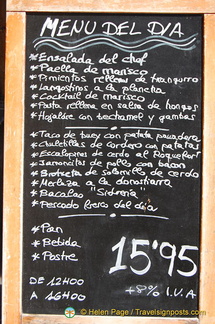 MENU DEL DIA
*Ensalada del chef
*Paella de marisco
*Pimientos rellenos de txangurro
*Langostinos a la plancha
*Cocktail de marisco
*Pasta rellena en salsa de hongos
*Hojaldre con bechamel y gambas
*Taco de buey con patata panadera
*Chuletillas de cordero con patatas
*Escalopines de cerdo al Roquefort
*Jamoncitos de pollo con bacon
*Brocheta de solomillo de cerdo
*Merluza a la donostiarra
*Bacalao "Sidrería"
*Pescado fresco del día
*Pan
*Bebida
*Postre
15'95
DE 12H00
A 16H00
+8% I.V.A
© Helen Page / Travelsignposts.com